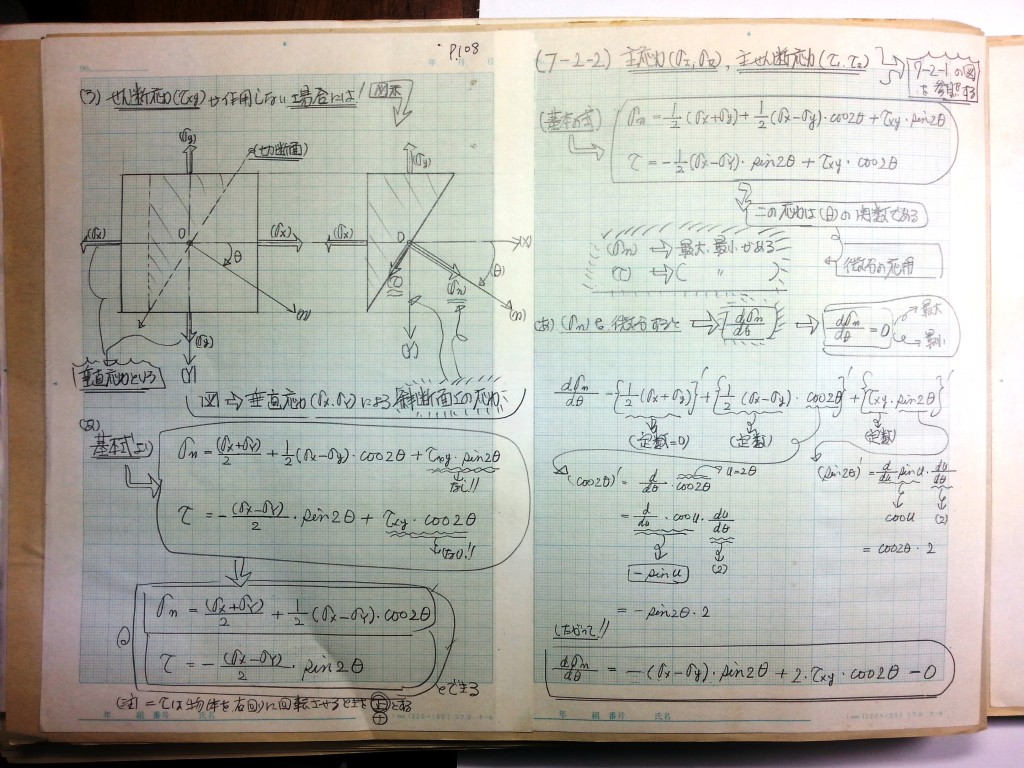 P108
(3) せん断応力(τxy)が作用しない場合には!
図示
σy
(切断面)
(σx)
(σx)
0
θ
(n)
σy
(Y)
垂直応力という
(σy)
(σx)
0
(X)
(θ)
(τ)
(σn)
(n)
(Y)
図⇒垂直応力(σx.σy)による斜断面上の応力
基本式より
σn = (σx+σy)/2 + 1/2(σx-σy)・cos2θ + τxy・sin2θ
なし!!
τ = -(σx-σy)/2・sin2θ + τxy・cos2θ
なし!!
σn = (σx+σy)/2 + 1/2(σx-σy)・cos2θ
τ = -(σx-σy)/2・sin2θ
とできる
(注) = τは物体を右回りに回転させるときを正とする
(+)
年 組 番号 氏名
(7-2-2) 主応力(σ1,σ2), 主せん断応力(τ1,τ2)
7-2-1の図
を参照する
(基本の式)
σn = 1/2(σx+σy) + 1/2(σx-σy)・cos2θ + τxy・sin2θ
τ = -1/2(σx-σy)・sin2θ + τxy・cos2θ
この応力は(θ)の関数である
(σn) → 最大、最小がある
(τ) → ( 〃 )
微分の応用
(あ) (σn)を微分すると ⇒ dσn/dθ → dσn/dθ = 0
最大
最小
dσn/dθ = {1/2(σx+σy)}' + {1/2(σx-σy)・cos2θ}' + {τxy・sin2θ}'
(定数=0) (定数) (定数)
(cos2θ)' = d/dθ・cos2θ
u=2θ
= d/du・cosu・du/dθ
-sinu
(2)
= -sin2θ・2
(sin2θ)' = d/du・sinu・du/dθ
cosu (2)
= cos2θ・2
したがって!!
dσn/dθ = -(σx-σy)・sin2θ + 2・τxy・cos2θ - 0
年 組 番号 氏名